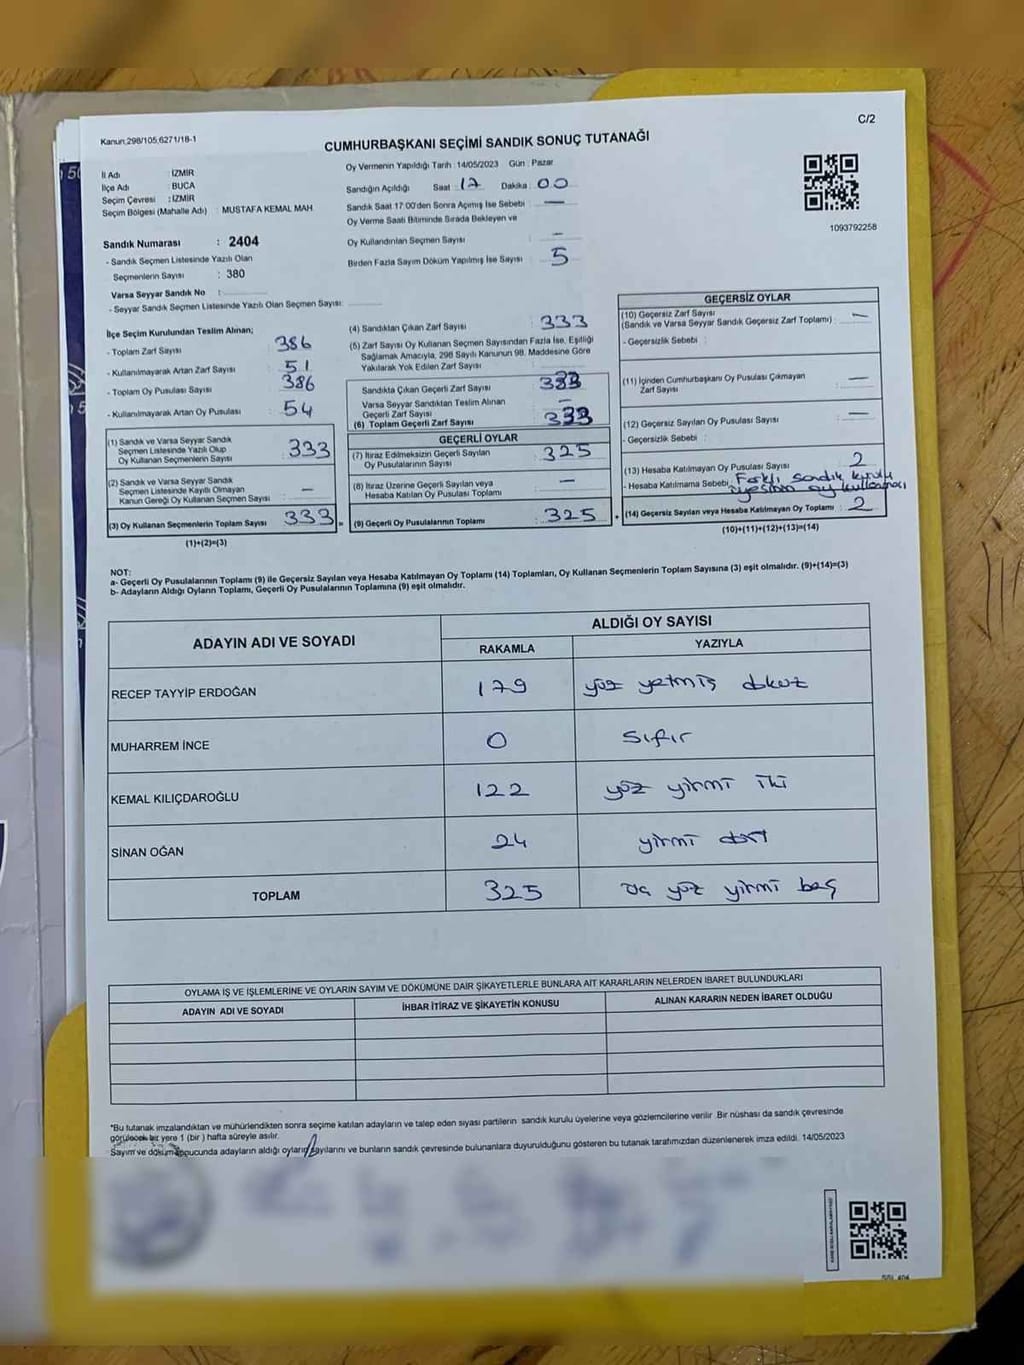 C/2
Kanun:298/105,6271/18-1
CUMHURBAŞKANI SEÇİMİ SANDIK SONUÇ TUTANAĞI
İl Adı : İZMİR
İlçe Adı : BUCA
Seçim Çevresi : İZMİR
Seçim Bölgesi (Mahalle Adı) : MUSTAFA KEMAL MAH
Sandık Numarası : 2404
- Sandık Seçmen Listesinde Yazılı Olan
Seçmenlerin Sayısı : 380
Varsa Seyyar Sandık No :
- Seyyar Sandık Seçmen Listesinde Yazılı Olan Seçmen Sayısı:
Oy Vermenin Yapıldığı Tarih : 14/05/2023 Gün : Pazar
Sandığın Açıldığı Saat : 17 Dakika : 00
Sandık Saat 17:00'den Sonra Açımış İse Sebebi : —
Oy Verme Saati Bitiminde Sırada Bekleyen ve
Oy Kullandırılan Seçmen Sayısı : —
Birden Fazla Sayım Döküm Yapılmış İse Sayısı : 5
1093792258
İlçe Seçim Kurulundan Teslim Alınan;
- Toplam Zarf Sayısı : 386
- Kullanılmayarak Artan Zarf Sayısı : 51
- Toplam Oy Pusulası Sayısı : 386
- Kullanılmayarak Artan Oy Pusulası : 54
(1) Sandık ve Varsa Seyyar Sandık
Seçmen Listesinde Yazılı Olup
Oy Kullanan Seçmenlerin Sayısı : 333
(2) Sandık ve Varsa Seyyar Sandık
Seçmen Listesinde Kayıtlı Olmayan
Kanun Gereği Oy Kullanan Seçmen Sayısı : —
(3) Oy Kullanan Seçmenlerin Toplam Sayısı : 333 =
(1)+(2)=(3)
(4) Sandıktan Çıkan Zarf Sayısı : 333
(5) Zarf Sayısı Oy Kullanan Seçmen Sayısından Fazla İse, Eşitliği
Sağlamak Amacıyla, 298 Sayılı Kanunun 98. Maddesine Göre
Yakılarak Yok Edilen Zarf Sayısı :
Sandıkta Çıkan Geçerli Zarf Sayısı : 333
Varsa Seyyar Sandıktan Teslim Alınan
Geçerli Zarf Sayısı : —
(6) Toplam Geçerli Zarf Sayısı : 333
GEÇERLİ OYLAR
(7) İtiraz Edilmeksizin Geçerli Sayılan
Oy Pusulalarının Sayısı : 325
(8) İtiraz Üzerine Geçerli Sayılan veya
Hesaba Katılan Oy Pusulası Toplamı : —
(9) Geçerli Oy Pusulalarının Toplamı : 325 +
GEÇERSİZ OYLAR
(10) Geçersiz Zarf Sayısı
(Sandık ve Varsa Seyyar Sandık Geçersiz Zarf Toplamı) : —
- Geçersizlik Sebebi :
(11) İçinden Cumhurbaşkanı Oy Pusulası Çıkmayan
Zarf Sayısı : —
(12) Geçersiz Sayılan Oy Pusulası Sayısı : —
- Geçersizlik Sebebi :
(13) Hesaba Katılmayan Oy Pusulası Sayısı : 2
- Hesaba Katılmama Sebebi : Farklı sandık kurulu
üyesinin oy kullanması
(14) Geçersiz Sayılan veya Hesaba Katılmayan Oy Toplamı : 2
(10)+(11)+(12)+(13)=(14)
NOT:
a- Geçerli Oy Pusulalarının Toplamı (9) ile Geçersiz Sayılan veya Hesaba Katılmayan Oy Toplamı (14) Toplamları, Oy Kullanan Seçmenlerin Toplam Sayısına (3) eşit olmalıdır. (9)+(14)=(3)
b- Adayların Aldığı Oyların Toplamı, Geçerli Oy Pusulalarının Toplamına (9) eşit olmalıdır.
ADAYIN ADI VE SOYADI
ALDIĞI OY SAYISI
RAKAMLA YAZIYLA
RECEP TAYYİP ERDOĞAN 179 yüz yetmiş dokuz
MUHARREM İNCE 0 sıfır
KEMAL KILIÇDAROĞLU 122 yüz yirmi iki
SİNAN OĞAN 24 yirmi dört
TOPLAM 325 üç yüz yirmi beş
OYLAMA İŞ VE İŞLEMLERİNE VE OYLARIN SAYIM VE DÖKÜMÜNE DAİR ŞİKAYETLERLE BUNLARA AİT KARARLARIN NELERDEN İBARET BULUNDUKLARI
ADAYIN ADI VE SOYADI İHBAR İTİRAZ VE ŞİKAYETİN KONUSU ALINAN KARARIN NEDEN İBARET OLDUĞU
*Bu tutanak imzalandıktan ve mühürlendikten sonra seçime katılan adayların ve talep eden siyasi partilerin sandık kurulu üyelerine veya gözlemcilerine verilir. Bir nüshası da sandık çevresinde
görülecek bir yere 1 (bir ) hafta süreyle asılır.
Sayım ve döküm sonucunda adayların aldığı oyların sayılarını ve bunların sandık çevresinde bulunanlara duyurulduğunu gösteren bu tutanak tarafımızdan düzenlenerek imza edildi. 14/05/2023